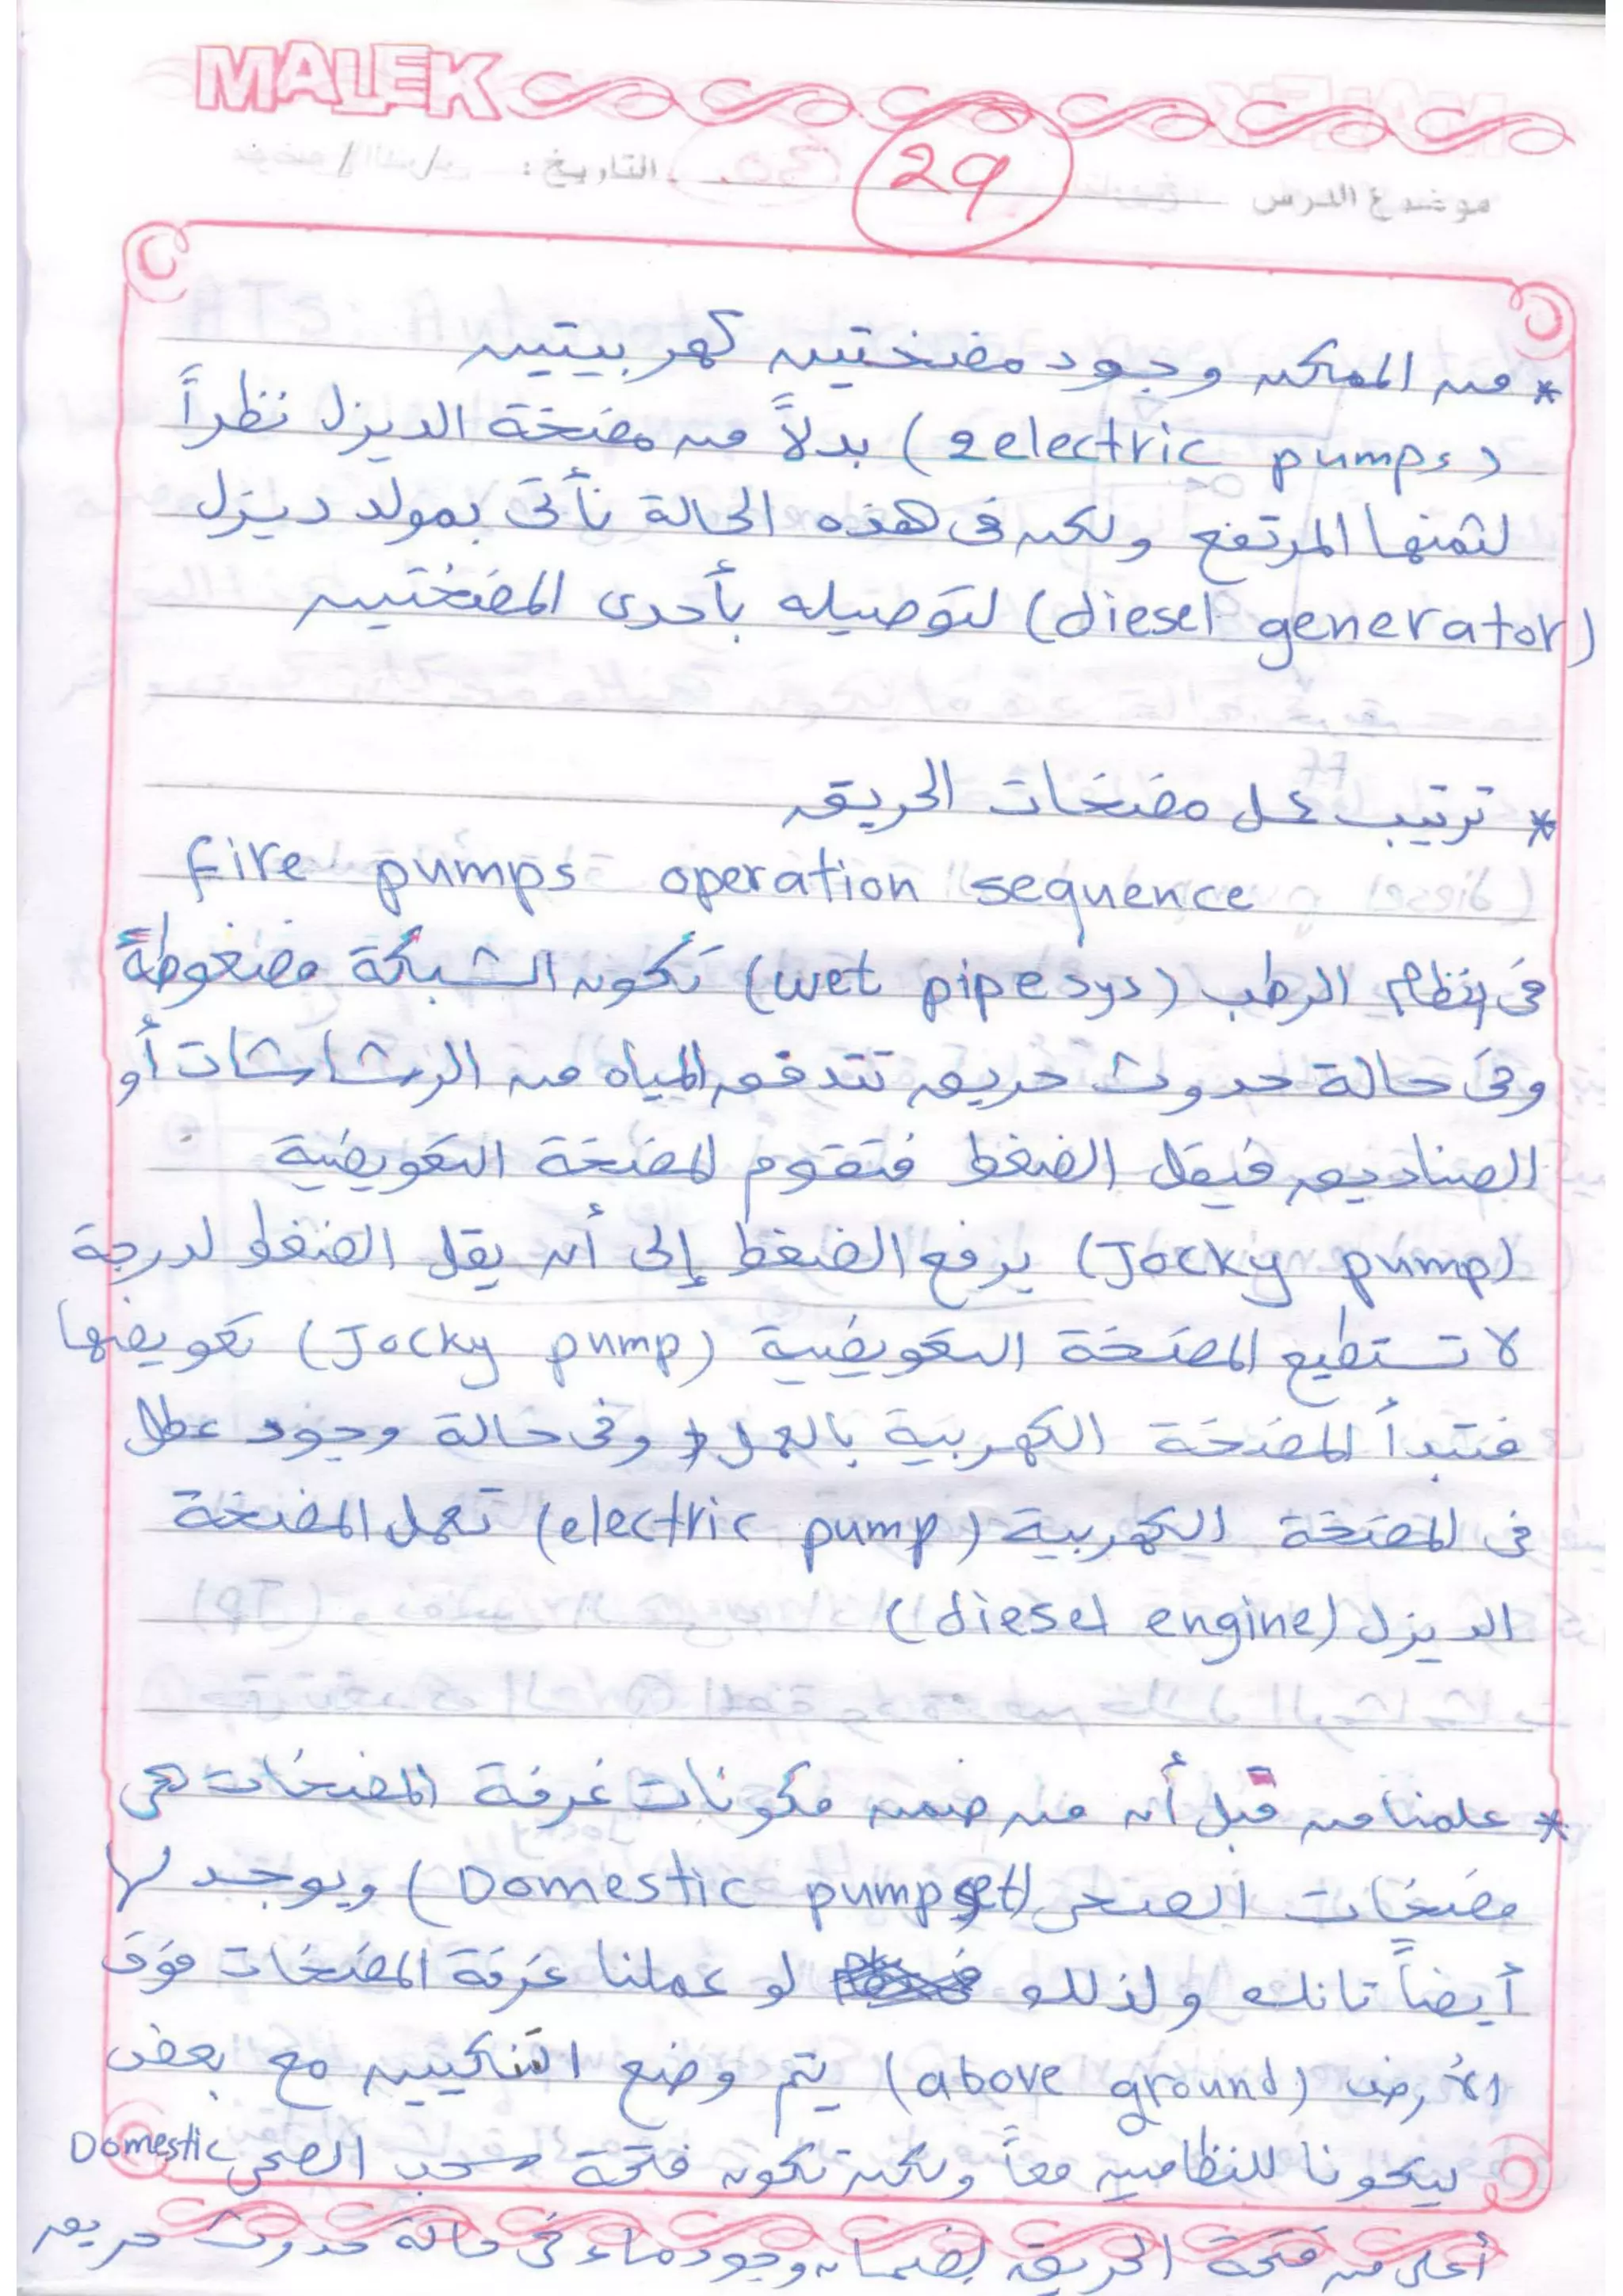 MALEK
موضوع الدرس 29 التاريخ : / /
* من الممكن وجود مضختين كهربيتين
(2electric pumps) بدلاً من مضخة الديزل نظراً
لثمنها المرتفع ولكن فى هذه الحالة نأتى بمولد ديزل
(diesel generator) لتوصيله بأحدى المضختين
* ترتيب عمل مضخات الحريق
Fire pumps operation sequence
فى نظام الرطب (wet pipe sys) تكون الشبكة مضغوطة
وفى حالة حدوث حريق تتدفق المياه من الرشاشات أو
الصناديق فيقل الضغط فتقوم المضخة التعويضية
(Jocky pump) برفع الضغط إلى أن يقل الضغط لدرجة
لا تستطيع المضخة التعويضية (Jocky pump) تعويضها
فتبدأ المضخة الكهربية بالعمل وفى حالة وجود عطل
فى المضخة الكهربية (electric pump) تعمل المضخة
الديزل (diesel engine)
* علمنا من قبل أن من ضمن مكونات غرفة المضخات هى
مضخات الصحى (Domestic pump set) ويوجد لها
أيضاً تانك ولذلك لو عملنا غرفة المضخات فوق
الأرض (above ground) يتم وضع التانكيين مع بعض
ليكونا للنظامين معاً ولكن تكون فتحة سحب الصحى Domestic
أعلى من فتحة الحريق لضمان وجود ماء فى حالة حدوث حريق